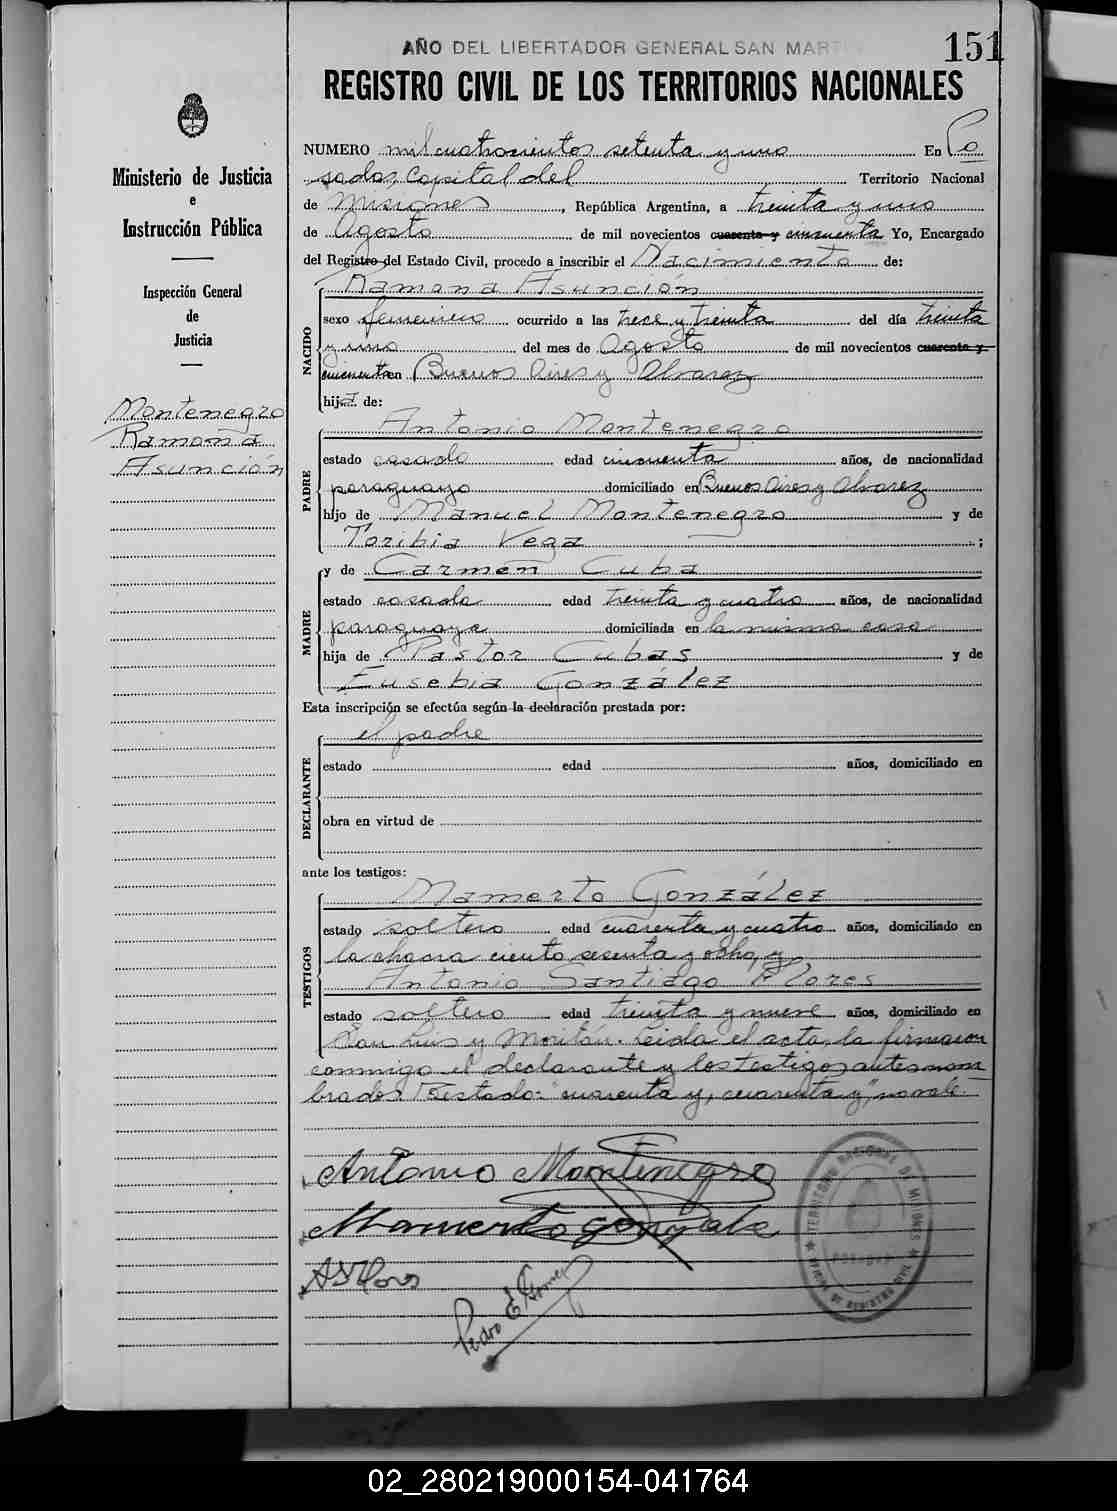 AÑO DEL LIBERTADOR GENERAL SAN MART
151
REGISTRO CIVIL DE LOS TERRITORIOS NACIONALES
Ministerio de Justicia
e
Instrucción Pública
Inspección General
de
Justicia
Montenegro
Ramona
Asunción
NUMERO mil cuatrocientos setenta y uno En Po
sadas, Capital del Territorio Nacional
de Misiones, República Argentina, a treinta y uno
de Agosto de mil novecientos cuarenta y cincuenta Yo, Encargado
del Registro del Estado Civil, procedo a inscribir el Nacimiento de:
NACIDO
Ramona Asunción
sexo femenino ocurrido a las trece y treinta del día treinta
y uno del mes de Agosto de mil novecientos cuarenta y
cincuenta en Buenos Aires y Alvarez
hija de:
PADRE
Antonio Montenegro
estado casado edad cincuenta años, de nacionalidad
paraguayo domiciliado en Buenos Aires y Alvarez
hijo de Manuel Montenegro y de
Toribia Vega ;
MADRE
y de Carmen Cuba
estado casada edad treinta y cuatro años, de nacionalidad
paraguaya domiciliada en la misma casa
hija de Pastor Cubas y de
Eusebia González
Esta inscripción se efectúa según la declaración prestada por:
DECLARANTE
el padre
estado edad años, domiciliado en
obra en virtud de
ante los testigos:
TESTIGOS
Mamerto González
estado soltero edad cuarenta y cuatro años, domiciliado en
la chacra ciento sesenta y ocho, y
Antonio Santiago Flores
estado soltero edad treinta y nueve años, domiciliado en
San Luis y Leida el acta, la firmaron
conmigo el declarante y los testigos antesnom
brados. Testado: "cuarenta y, cuarenta y", no vale.
Antonio Montenegro
Mamerto gonzalez
ASFlores
Pedro E. Gomez
TERRITORIO NACIONAL DE MISIONES
POSADAS
OFICINA DE REGISTRO CIVIL
02_280219000154-041764